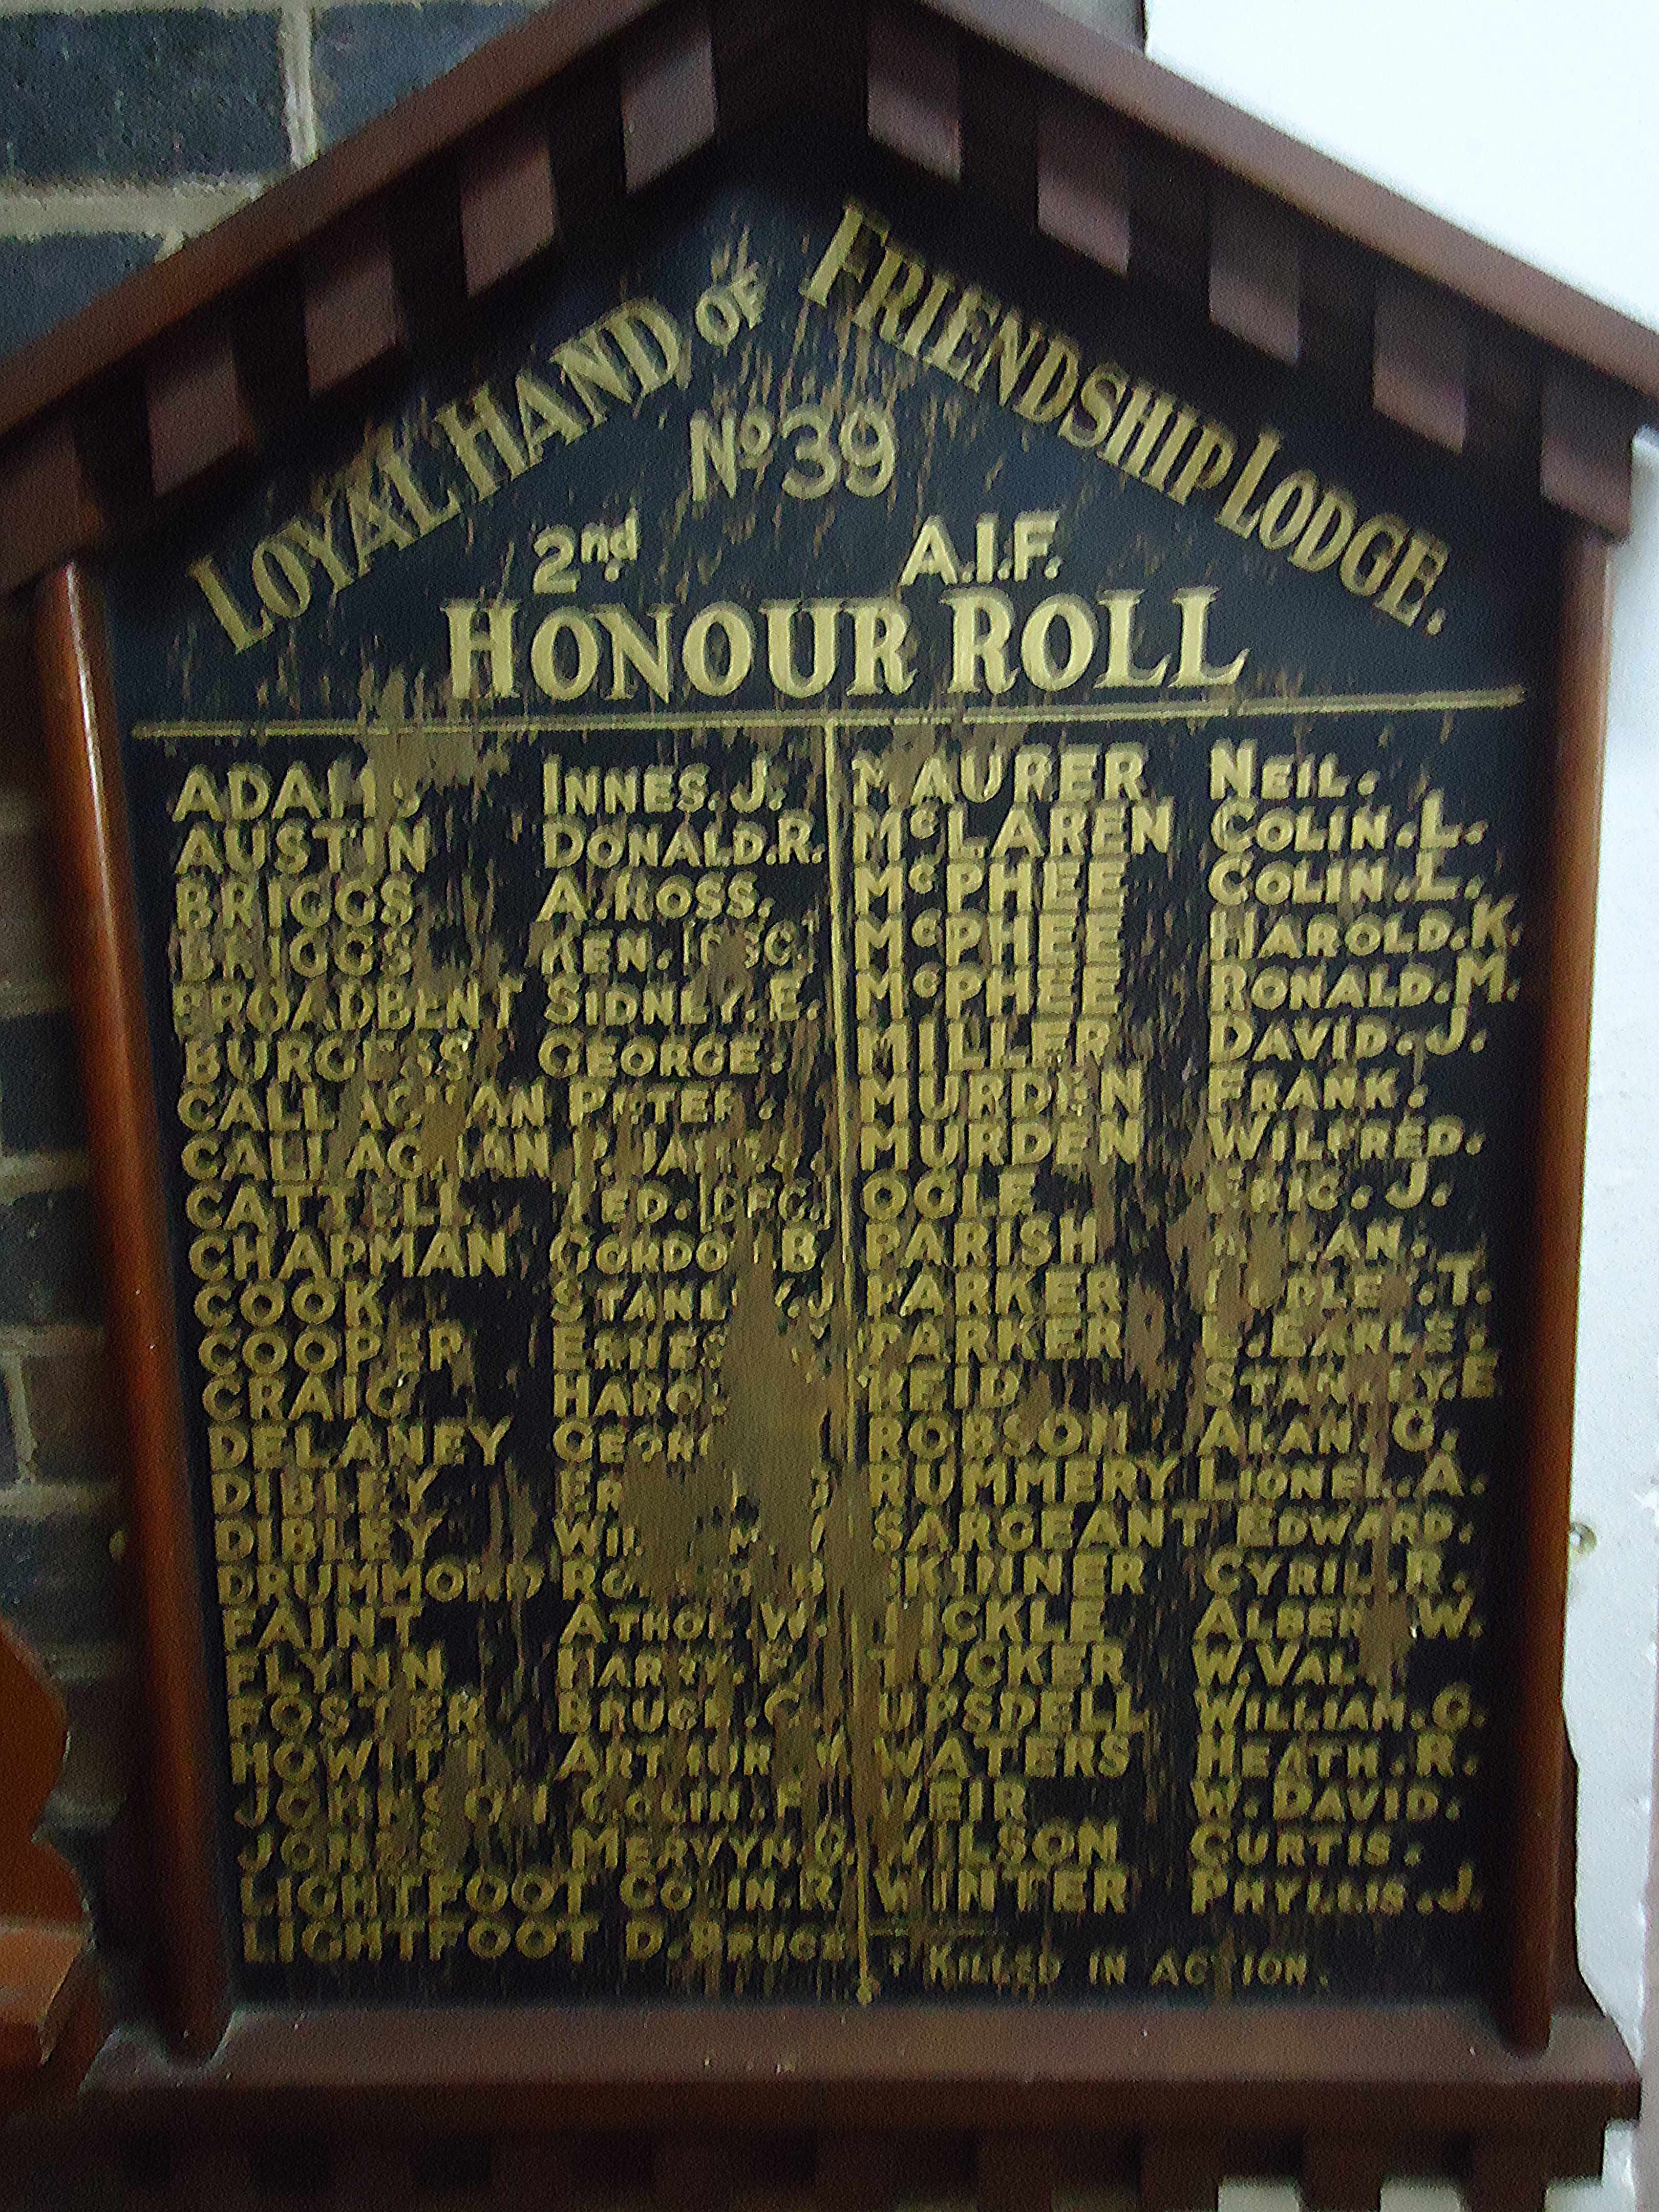 LOYAL HAND OF FRIENDSHIP LODGE.
No 39
2nd A.I.F.
HONOUR ROLL
ADAMS INNES. J.
AUSTIN DONALD. R.
BRIGGS A. ROSS.
BRIGGS KEN.
BROADBENT SIDNEY. E.
BURGESS GEORGE.
CALLAGHAN PETER.
CALLAGHAN
CATTELL [DFC.]
CHAPMAN GORDON B
COOK STANLEY. J
COOPER
CRAIG
DELANEY
DIBLEY
DIBLEY
DRUMMOND
FAINT ATHOL. W.
FLYNN HARRY.
FOSTER BRUCE.
HOWITT ARTHUR
JOHNSON COLIN. F
JONES MERVYN. G.
LIGHTFOOT COLIN. R
LIGHTFOOT D. BRUCE
MAURER NEIL.
McLAREN COLIN. L.
McPHEE COLIN. L.
McPHEE HAROLD. K.
McPHEE RONALD. M.
MILLER DAVID. J.
MURDEN FRANK.
MURDEN WILFRED.
OGLE ERIC. J.
PARISH
PARKER T.
PARKER E. EARLE.
REID STANLEY. E
ROBSON ALAN. G.
RUMMERY LIONEL. A.
SARGEANT EDWARD.
SKINNER CYRIL. R.
TICKLE ALBERT W.
TUCKER W. VAL.
UPSDELL WILLIAM. G.
WATERS HEATH. R.
WEIR W. DAVID.
WILSON CURTIS.
WINTER PHYLLIS. J.
† KILLED IN ACTION.